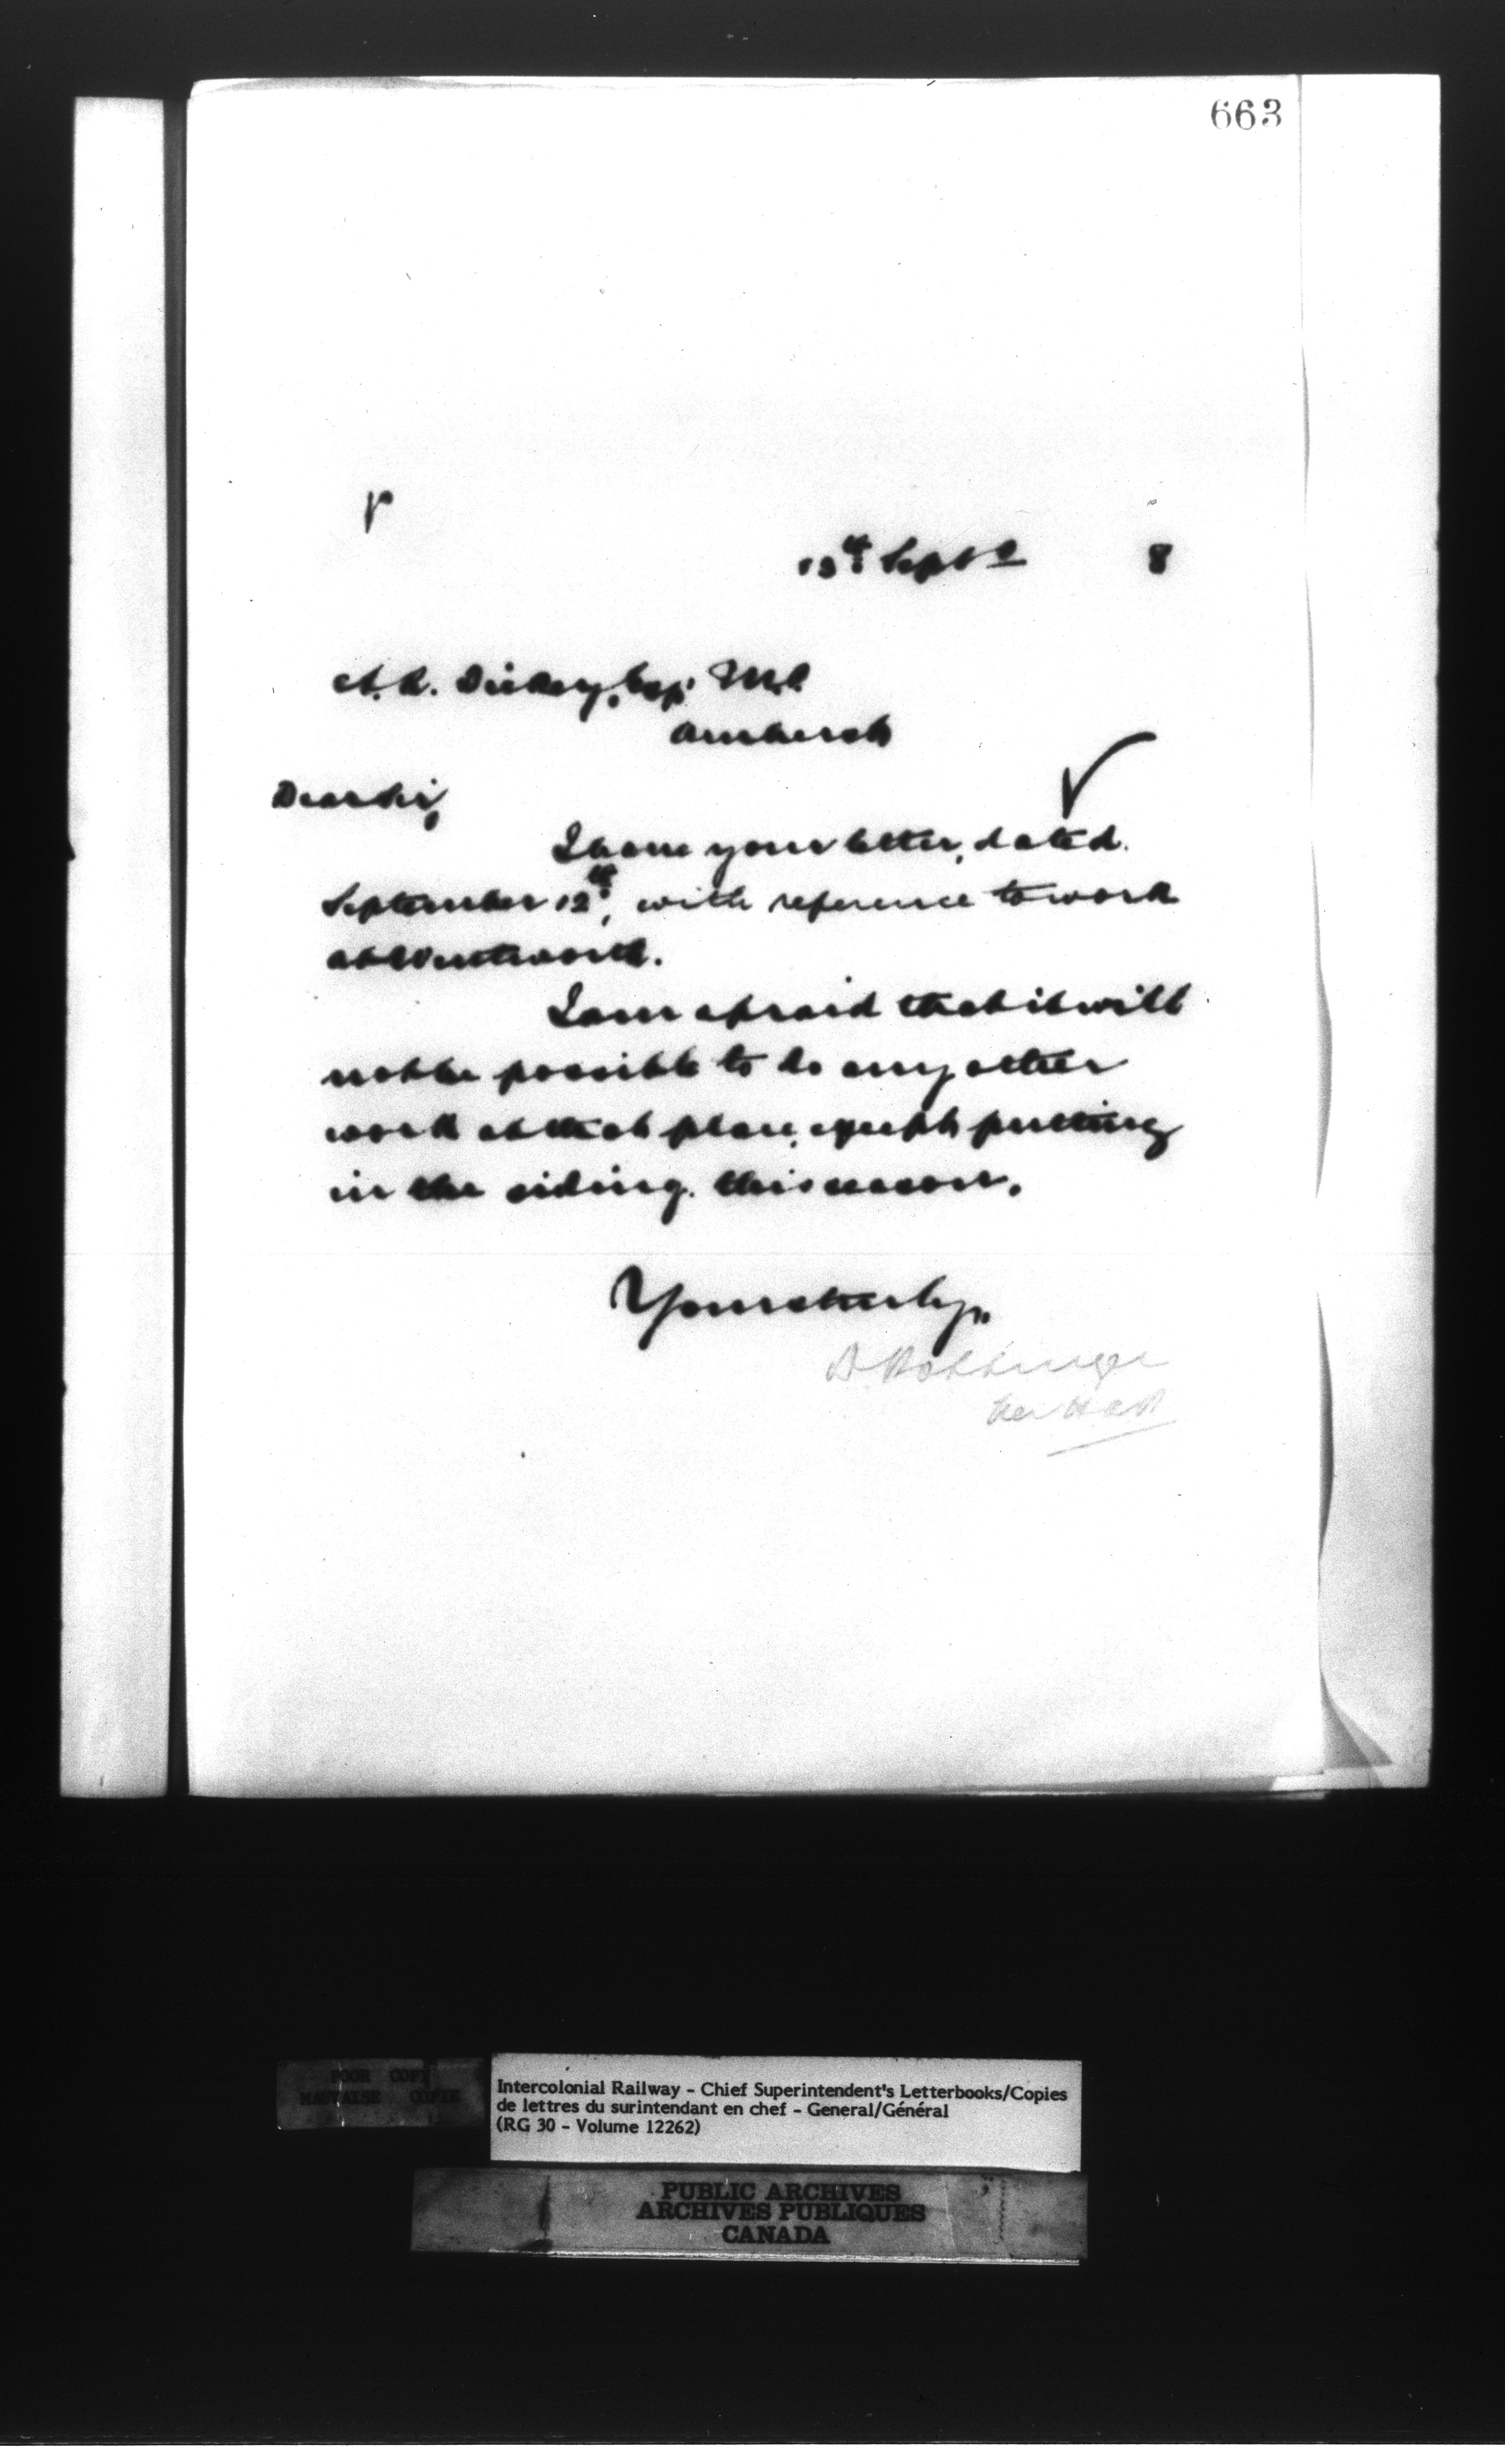 663
13th Septr 8
A.R. Dickey, Esq. M.P.
Amherst
Dear Sir,
I have your letter, dated
September 12th, with reference to work
at Wentworth.
I am afraid that it will
not be possible to do any other
work at that place, except putting
in the siding this season.
Yours truly,
D Pottinger
per
POOR COPY
MAUVAISE COPIE
Intercolonial Railway - Chief Superintendent's Letterbooks/Copies
de lettres du surintendant en chef - General/Général
(RG 30 - Volume 12262)
PUBLIC ARCHIVES
ARCHIVES PUBLIQUES
CANADA